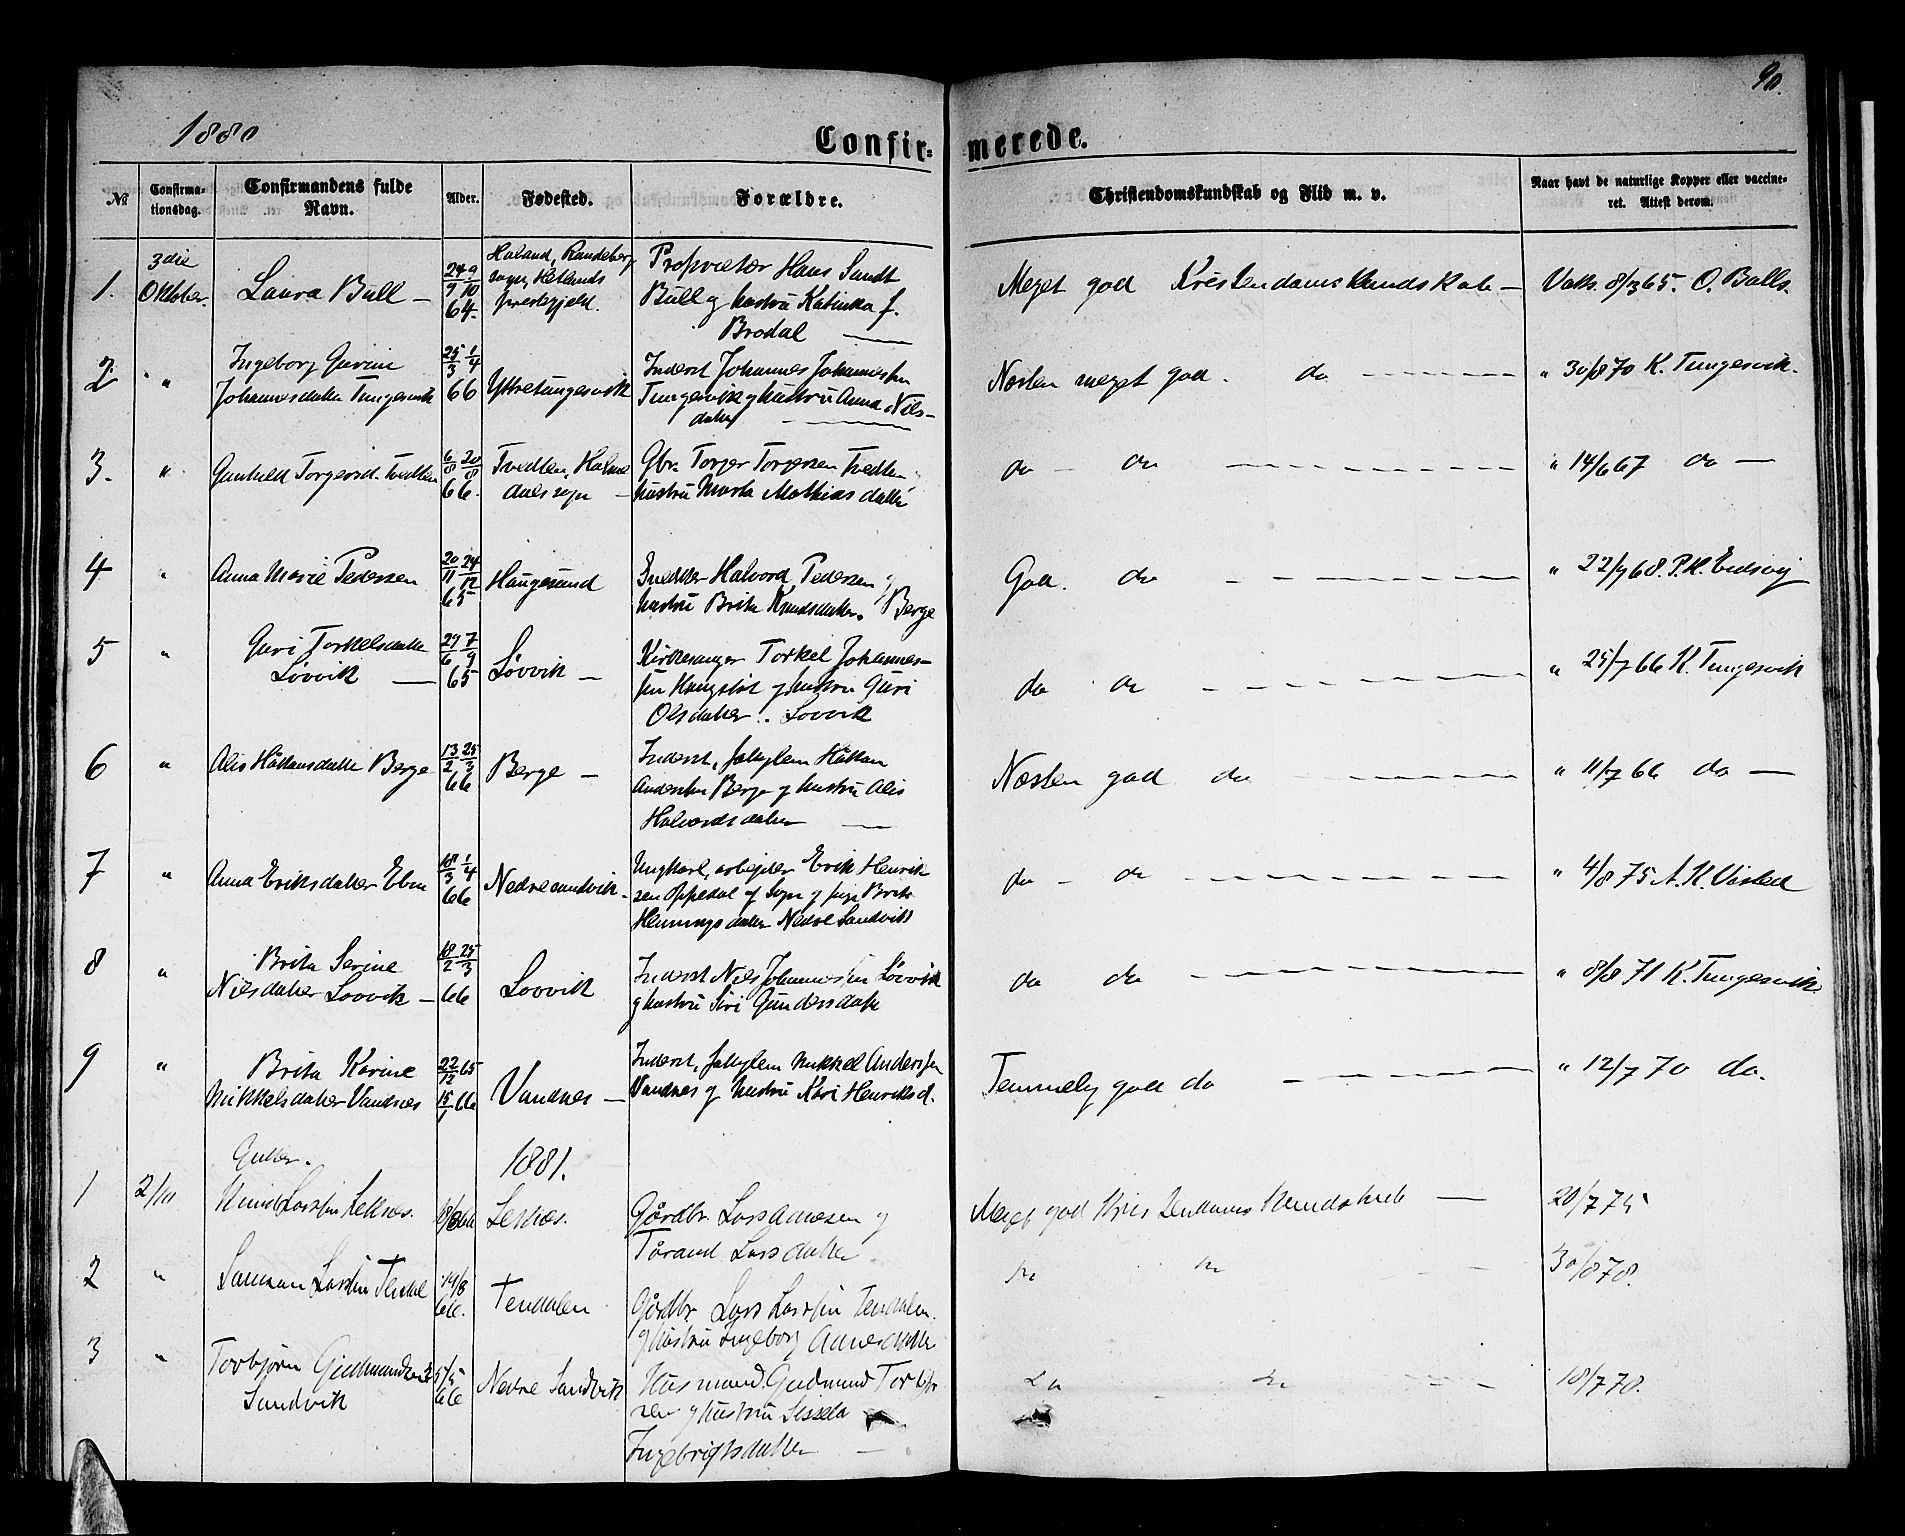 90.
1880
Confir- merede.
№ Confirma- Confirmandens fulde Alder. Fødested. Forældre. Christendomskundskab og Flid m. v. Naar havt de naturlige Kopper eller vaccine-
tionsdag. Navn. ret. Attest derom.
1. 3die Oktober. Laura Bull — 24/9 9/10 64. Haland, Randeberg
sogn, Hetlands
prestegjeld.
Proprietær Hans Sundt
Bull og hustru Katinka f.
Brodal —
Meget god Kristendomskundskab — Vaks. 8/3 65. O. Balls.
2 " Ingeborg Gurine
Johannesdatter Tungesvik
25/3 1/4 66 Yttretungesvik
Inderst Johannes Johannessen
Tungesvik og hustru Anna Nils-
datter —
Næsten meget god. do — " 30/8 70 K. Tungesvik.
3. " Gunhild Torgersd. Tvedten 6/8 20/8 66. Tvedten, Holme
dals sogn —
Gbr. Torger Torgersen Tvedten
hustru Marta Mathiasdatter
do — do — " 14/6 67 do —
4 " Anna Marie Pedersen 20/11 24/12 65 Haugesund
Snedker Halvord Pedersen og
hustru Brita Knudsdatter. Berge
God. do — " 22/9 68. P. K. Eidsvig
5 " Guri Torkelsdatter
Løvvik —
29/6 7/9 65 Løvvik —
Kirkesanger Torkel Johannes-
sen og hustru Guri
Olsdatter. Lovvik
do do — " 25/7 66 K. Tungesvik
6 " Alis Håkansdatter Berge 13/2 25/3 66 Berge —
Inderst, Håkan
Andersen Berge og hustru Alis
Halvordsdatter —
Næsten god do — " 11/7 66 do —
7 " Anna Eriksdatter 18/3 1/4 66 Nedresandvik.
Ungkarl, arbejder Erik Henrik
sen Oppedal af Sogn og pige Brita
Henningsdatter Nedre Sandvik
do — do — " 4/8 75 A. K. Visted
8 " Brita Serine
Nilsdatter Lovvik —
18/2 25/3 66 Lovvik
Inderst Nils Johannessen Løvvik
og hustru Siri Gundersdatter
do do — " 8/8 71 K. Tungesvik.
9 " Brita Karine
Mikkelsdatter Vandnes
22/12 65 15/1 66 Vandnes —
Inderst, Mikkel Andersen
Vandnes og hustru Kari Henriksd.
Temmelig god do — " 12/7 70 do.
Gutter. 1881.
1 2/10 Larssen Leknes. Leknes.
Gårdbr. Lars Amesen og
Tårand Larsdatter
Meget god Kristendomskundskab — 20/7 75
2 " Samson Larssen Tendal 19/8 66. Tendalen
Gårdbr. Lars Larssen Tendalen.
og hustru Ingeborg
do do 30/8 78.
3 " Torbjørn Gudmundsen
Sandvik
5/5 66 Nedre Sandvik.
Husmand. Gudmund Torbjør
sen og hustru Sissela
Ingebrigtsdatter —
do do 18/7 78.